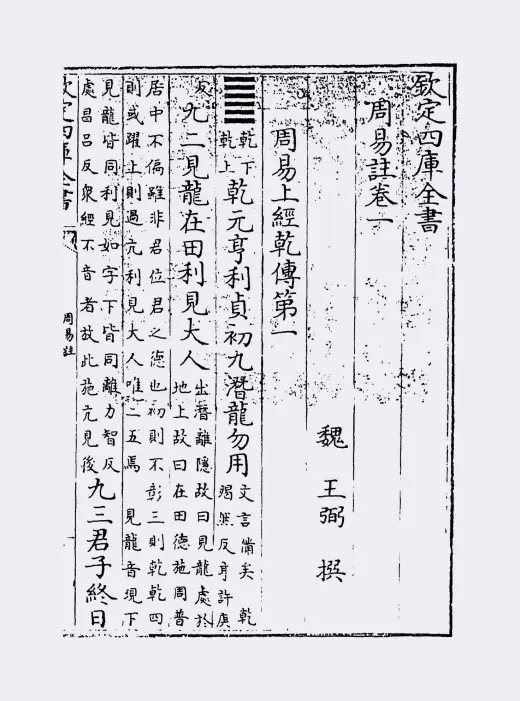 欽定四庫全書
周易註卷一
魏 王弼 撰
周易上經乾傳第一
䷀
乾下
乾上
乾元亨利貞初九潛龍勿用
文言備矣 乾
竭然反亨許庚
反
九二見龍在田利見大人
出潛離隱故曰見龍處於
地上故曰在田德施周普
居中不偏雖非君位君之德也初則不彰三則乾乾四
則或躍上則過亢利見大人唯二五焉 見龍音現下
見龍皆同利見如字下皆同離力智反
處昌呂反衆經不音者故此施亢見後
九三君子終日
欽定四庫全書
周易註